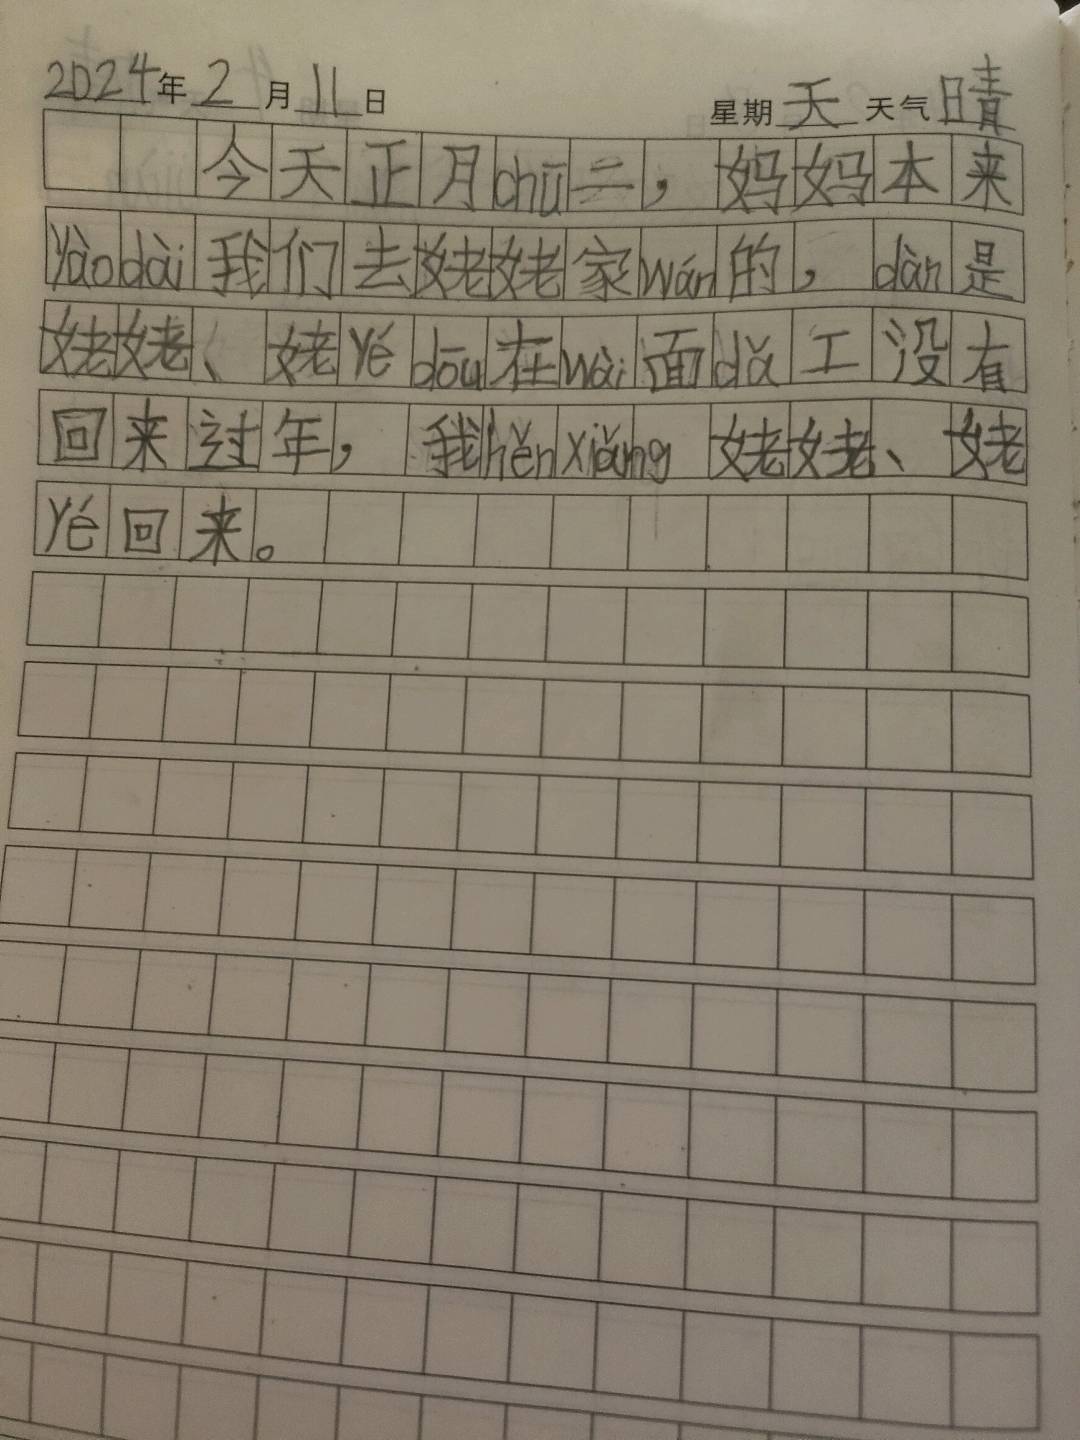 2024年2月11日 星期天 天气晴
今天正月chū二，妈妈本来
yàodài我们去姥姥家wán的，dàn是
姥姥、姥yé dōu在wài面dǎ工没有
回来过年，我hěnxiǎng姥姥、姥
yé回来。